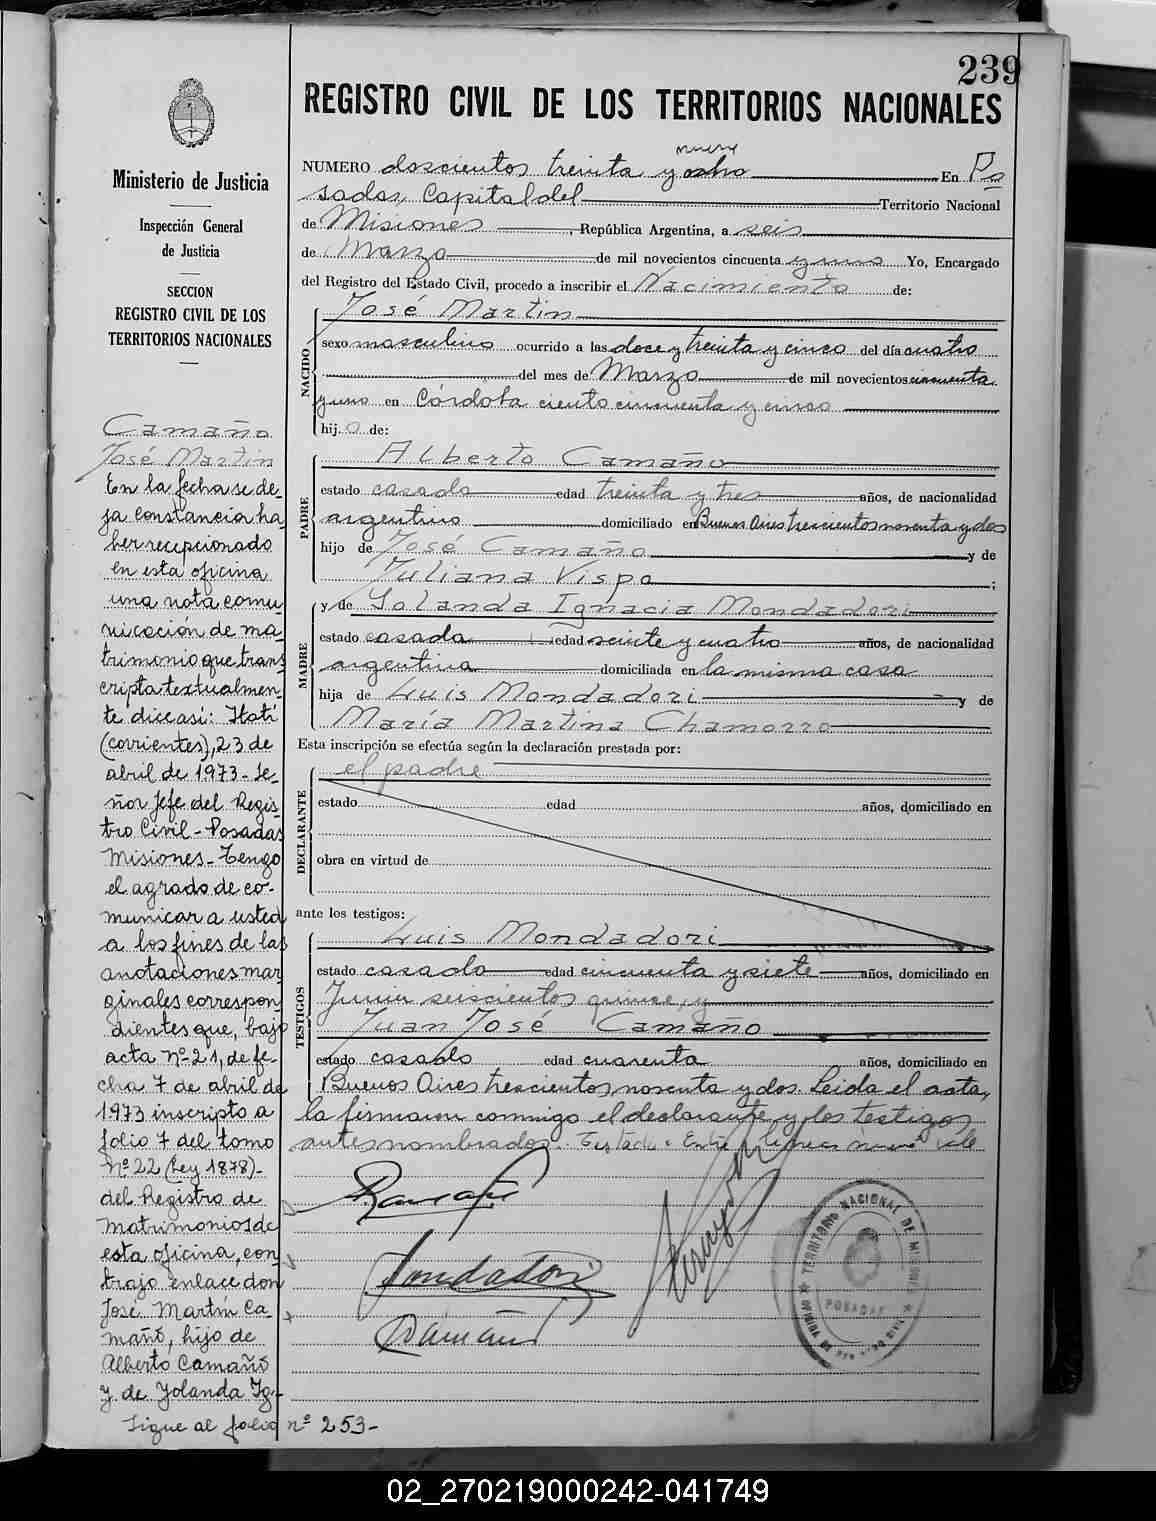 239
REGISTRO CIVIL DE LOS TERRITORIOS NACIONALES
Ministerio de Justicia
Inspección General
de Justicia
SECCION
REGISTRO CIVIL DE LOS
TERRITORIOS NACIONALES
Camaño
José Martin
En la fecha se de-
ja constancia ha-
ber recepcionado
en esta oficina
una nota comu
nicación de ma
trimonio que trans
cripta textualmen
te dice así: Itatí
(corrientes), 23 de
abril de 1973 - Se-
ñor Jefe del Regis-
tro Civil - Posadas
Misiones - Tengo
el agrado de co-
municar a usted
a los fines de las
anotaciones mar
ginales correspon
dientes que, bajo
acta Nº 21, de fe-
cha 7 de abril de
1973 inscripto a
folio 7 del tomo
Nº 22 (Ley 1878) -
del Registro de
Matrimonios de
esta oficina, con
trajo enlace don
José Martín Ca-
maño, hijo de
Alberto Camaño
y de Yolanda Ig-
Sigue al folio nº 253-
nueve
NUMERO doscientos treinta y ocho En Po
sadas, Capital del Territorio Nacional
de Misiones, República Argentina, a seis
de Marzo de mil novecientos cincuenta y uno Yo, Encargado
del Registro del Estado Civil, procedo a inscribir el Nacimiento de:
NACIDO
José Martin
sexo masculino ocurrido a las doce y treinta y cinco del día cuatro
del mes de Marzo de mil novecientos cincuenta
y uno en Córdoba ciento cincuenta y cinco
hijo de:
PADRE
Alberto Camaño
estado casado edad treinta y tres años, de nacionalidad
argentino domiciliado en Buenos Aires trescientos noventa y dos
hijo de José Camaño y de
Juliana Vispo;
MADRE
y de Yolanda Ignacia Mondadori
estado casada edad veinte y cuatro años, de nacionalidad
argentina domiciliada en la misma casa
hija de Luis Mondadori y de
María Martina Chamorro
Esta inscripción se efectúa según la declaración prestada por:
DECLARANTE
el padre
estado edad años, domiciliado en
obra en virtud de
ante los testigos:
TESTIGOS
Luis Mondadori
estado casado edad cincuenta y siete años, domiciliado en
Junin seiscientos quince, y
Juan José Camaño
estado casado edad cuarenta años, domiciliado en
Buenos Aires trescientos noventa y dos. Leida el acta,
la firmaron conmigo el declarante y los testigos
antes nombrados. Testado: Entre lineas: nueve: vale
Mondadori
Camaño
TERRITORIO NACIONAL DE MISIONES
POSADAS
02_270219000242-041749